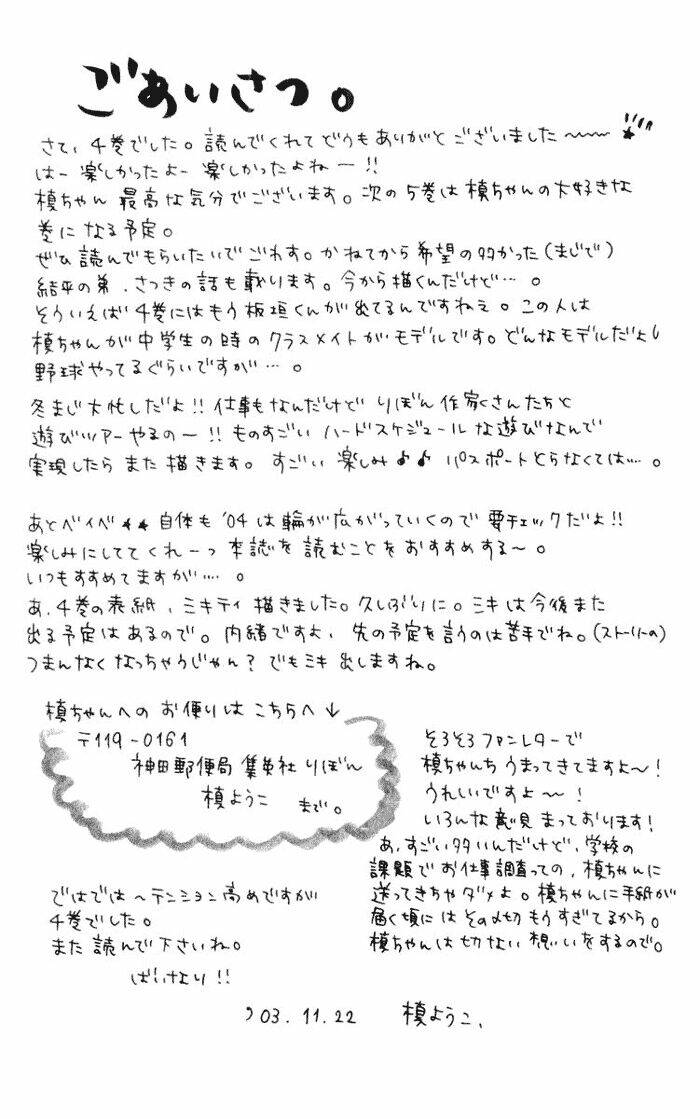 ごあいさつ。
さて、4巻でした。読んでくれてどうもありがとございました〜
はー楽しかったよー楽しかったよねー!!
槙ちゃん最高な気分でございます。次の5巻は槙ちゃんの大好きな
巻になる予定。
ぜひ読んでもらいたいでごわす。かねてから希望の多かった(まじで)
結平の弟、さつきの話も載ります。今から描くんだけど…。
そういえば4巻にはもう板垣くんが出てるんですねえ。この人は
槙ちゃんが中学生の時のクラスメイトがモデルです。どんなモデルだよ
野球やってるぐらいですが…。
冬まじ大忙しだよ!!仕事もなんだけどりぼん作家さんたちと
遊びツアーやるの〜!!ものすごいハードスケジュールな遊びなんで
実現したらまた描きます。すごい楽しみ♪♪パスポートとらなくては…。
あとベイベ★★自体も'04は輪が広がっていくので要チェックだよ!!
楽しみにしててくれーっ本誌を読むことをおすすめする〜。
いつもすすめてますが…。
あ、4巻の表紙、ミキティ描きました。久しぶりに。ミキは今後また
出る予定はあるので。内緒ですよ、先の予定を言うのは苦手でね。(ストーリーの)
つまんなくなっちゃうじゃん?でもミキ出しますね。
槙ちゃんへのお便りはこちらへ↓
〒119-0161
神田郵便局 集英社 りぼん
槙ようこ まで。
そろそろファンレターで
槙ちゃんちうまってきてますよ〜!
うれしいですよ〜!
いろんな意見まっております!
あ、すごい多いんだけど、学校の
課題でお仕事調査っての、槙ちゃんに
送ってきちゃダメよ。槙ちゃんに手紙が
届く頃にはその〆切もうすぎてるから。
槙ちゃんは切ない想いをするので。
ではでは〜テンション高めですが
4巻でした。
また読んで下さいね。
ばいなり!!
'03.11.22 槙ようこ、